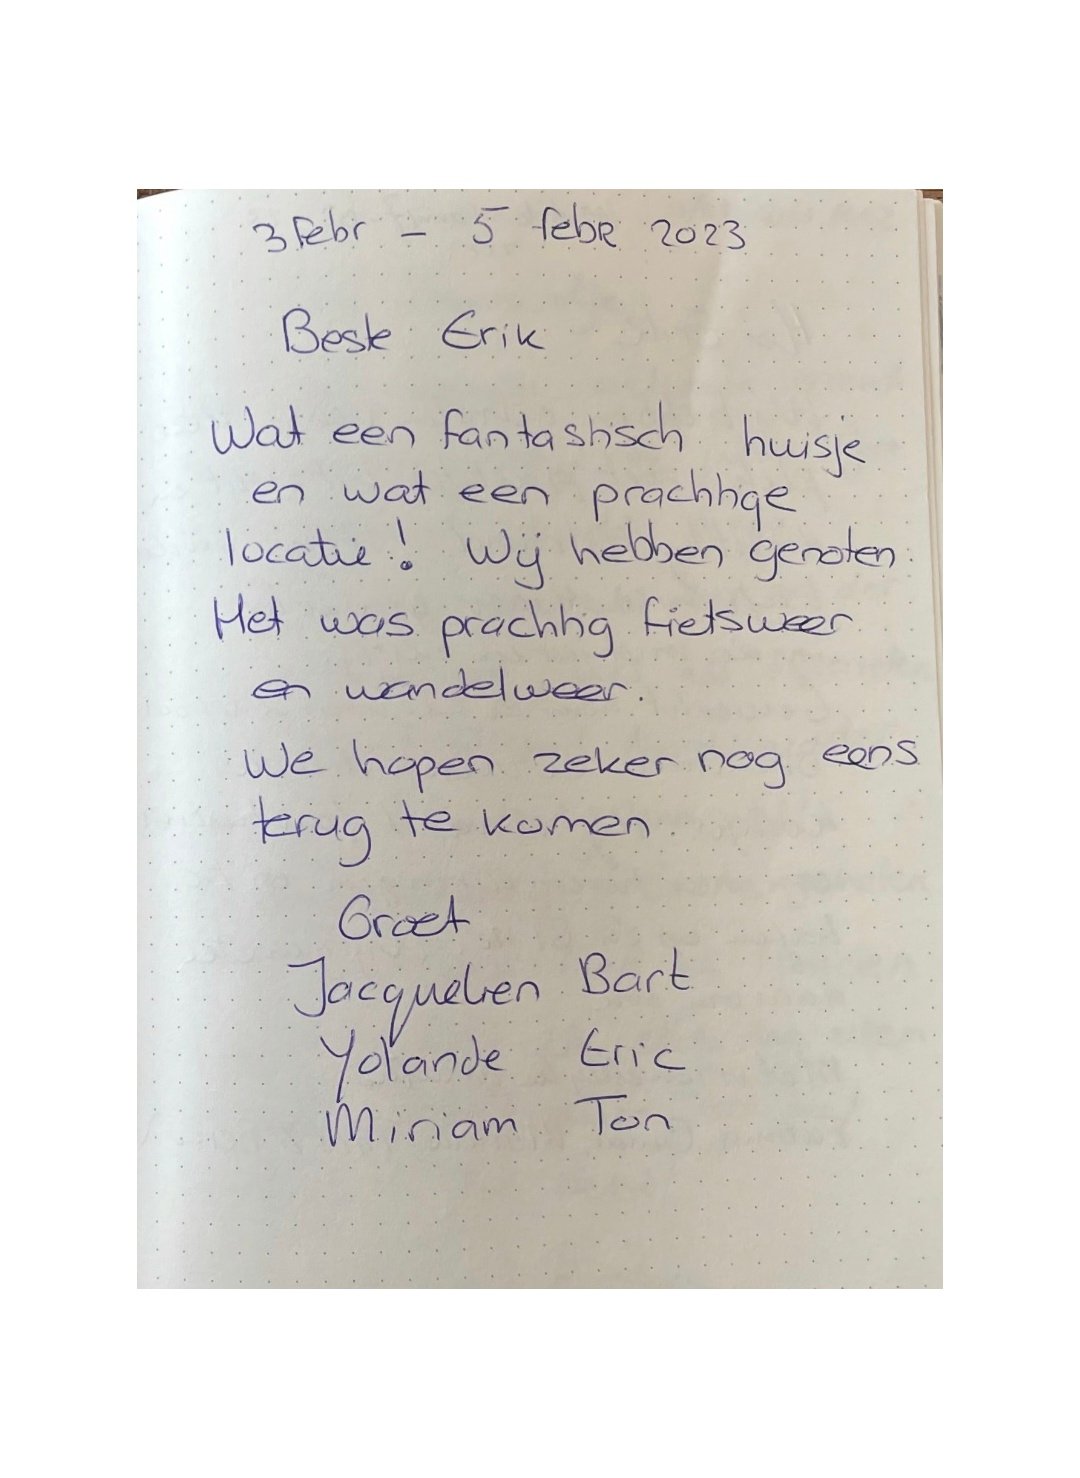 3 febr - 5 febr 2023
Beste Erik
Wat een fantastisch huisje
en wat een prachtige
locatie! Wij hebben genoten.
Het was prachtig fietsweer
en wandelweer.
We hopen zeker nog eens
terug te komen.
Groet
Jacquelien Bart
Yolande Eric
Miriam Ton